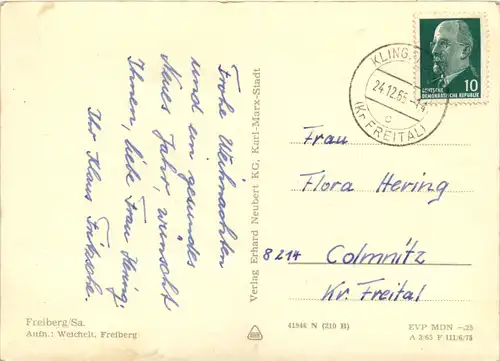 Frohe Weihnachten
und ein gesundes
Neues Jahr, wünscht
Ihnen, liebe Frau Hering.
Ihr Klaus Fritzsche.
Freiberg/Sa.
Aufn.: Weichelt, Freiberg
Verlag Erhard Neubert KG, Karl-Marx-Stadt
KLING
24.12.65
c
(Kr. FREITAL)
DEUTSCHE
DEMOKRATISCHE REPUBLIK
10
Frau
Flora Hering
8214 Colmnitz
Kr. Freital
41946 N (210 H)
EVP MDN –.25
A 3/65 F 111/6/75